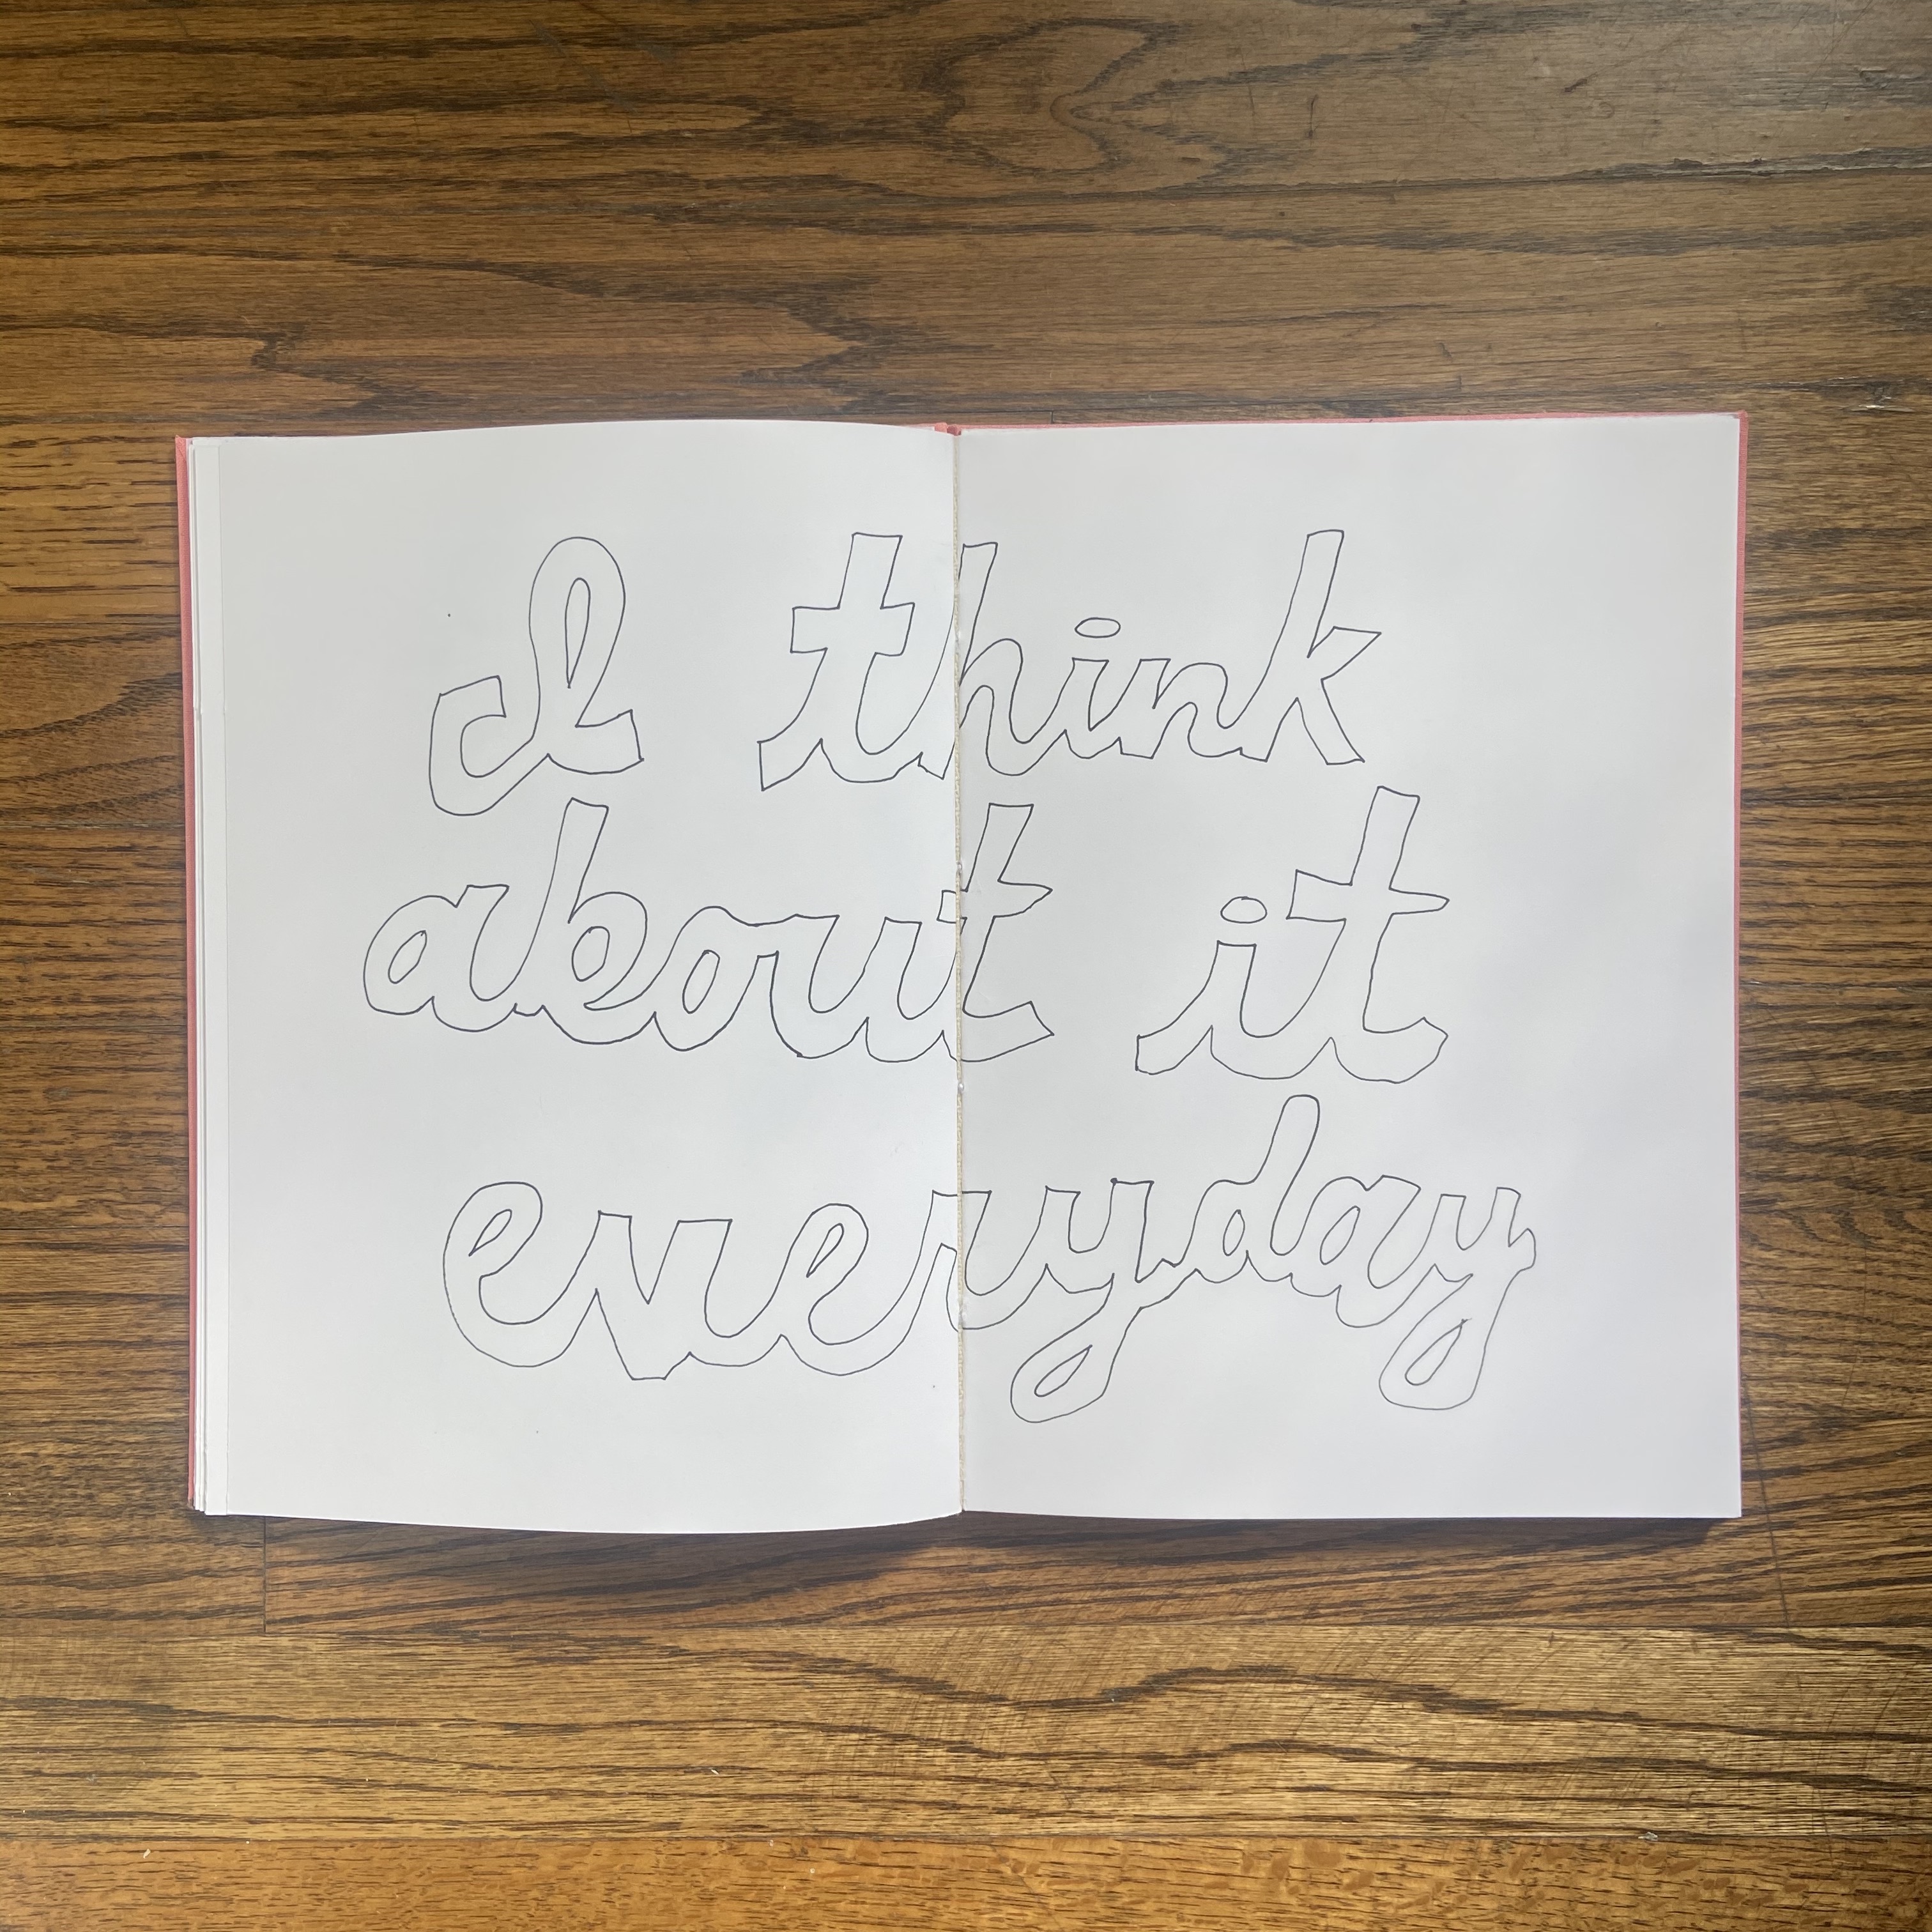 I think
about it
everyday